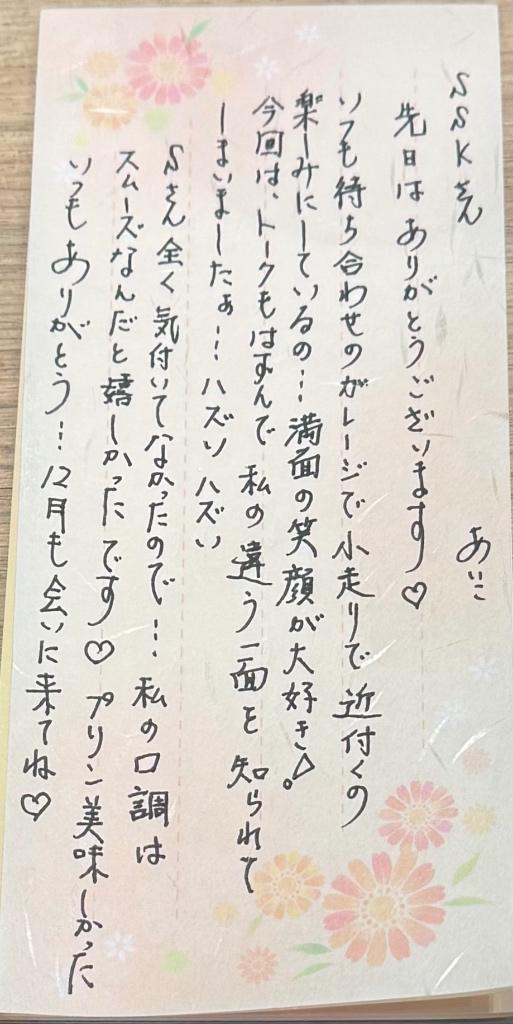 SSKさん　あいこ
先日は ありがとうございます♡
いつも待ち合わせのガレージで小走りで近付くの
楽しみにしているの…満面の笑顔が大好き!
今回は、トークもはずんで 私の違う一面を知られて
しまいましたぁ…ハズい ハズい
Sさん全く気付いてなかったので…私の口調は
スムーズなんだと嬉しかったです♡ プリン美味しかった
いつもありがとう…12月も会いに来てね♡